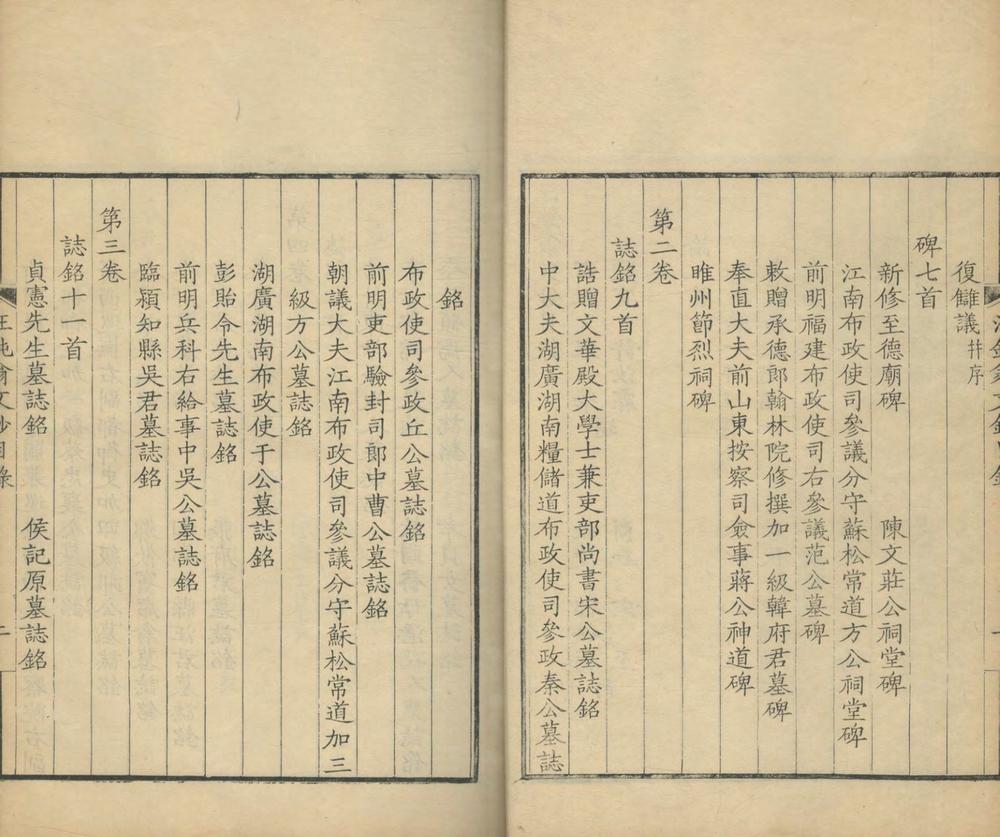 復讎議并序
碑七首
新修至德廟碑　陳文莊公祠堂碑
江南布政使司參議分守蘇松常道方公祠堂碑
前明福建布政使司右參議范公墓碑
敕贈承德郎翰林院修撰加一級韓府君墓碑
奉直大夫前山東按察司僉事蔣公神道碑
睢州節烈祠碑
第二卷
誌銘九首
誥贈文華殿大學士兼吏部尚書宋公墓誌銘
中大夫湖廣湖南糧儲道布政使司參政秦公墓誌
銘
布政使司參政丘公墓誌銘
前明吏部驗封司郎中曹公墓誌銘
朝議大夫江南布政使司參議分守蘇松常道加三
級方公墓誌銘
湖廣湖南布政使于公墓誌銘
彭貽令先生墓誌銘
前明兵科右給事中吳公墓誌銘
臨潁知縣吳君墓誌銘
第三卷
誌銘十一首
貞憲先生墓誌銘　侯記原墓誌銘
汪鈍翁文鈔目錄　二